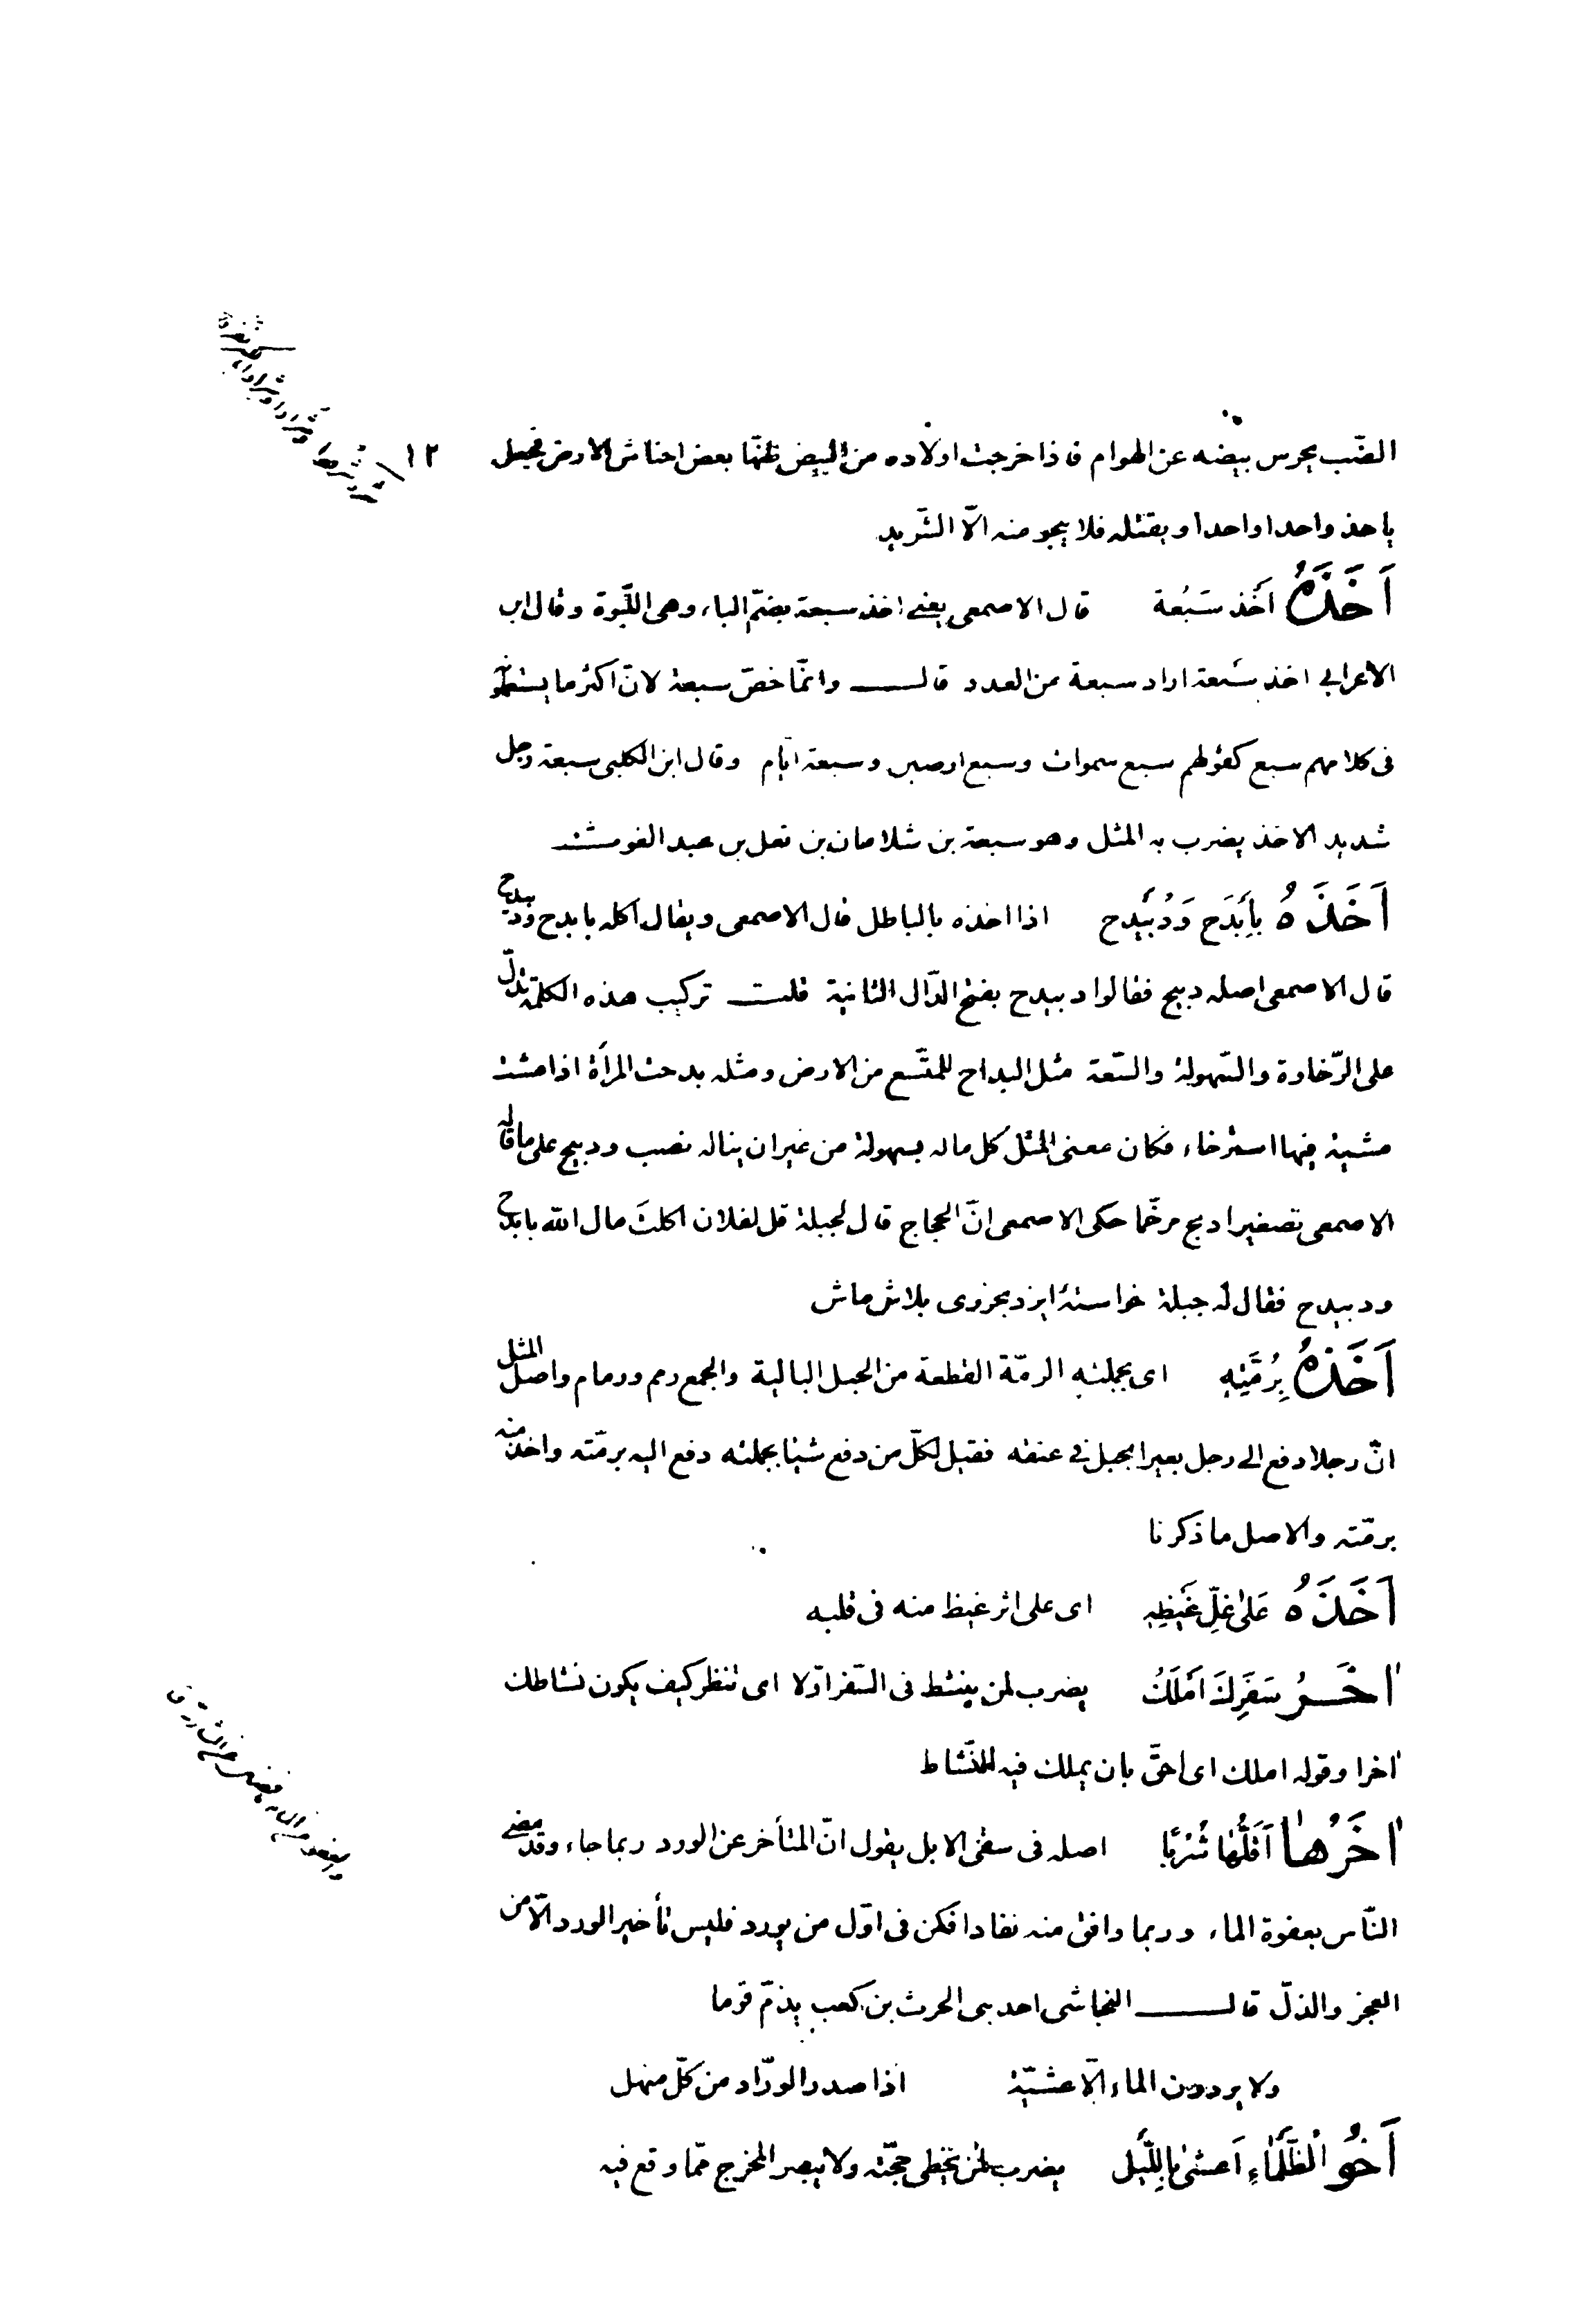 الضّب يحرس بيضه عن الهوام فاذا خرجت اولاده من البيض ظنّها بعض احناش الارض فجعل
ياخذ واحدا واحدا ويقتله فلا ينجو منه الّا الشّريد
اَخَذَهُ اَخذ سَبُعة قال الاصمعى يعنى اخذ سبعة بضمّ الباء وهى اللّبوة وقال ابن
الاعرابي اخذ سَبعة اراد سبعة من العدد قال وانّما خصّ سبعة لانّ اكثر ما يستعملو
فى كلامهم سبع كقولهم سبع سموات وسبع ارضين وسبعة ايّام وقال ابن الكلبى سبعة رجل
شديد الاخذ يضرب به المثل وهو سبعة بن سلامان بن ثعل بن عبد الغوث
اَخَذَهُ بِأَبدَح وَدُبَيدح اذا اخذه بالباطل قال الاصمعى ويقال اكله بابدح ودبيدح
قال الاصمعى اصله دبيح فقالوا دبيدح بفتح الدّال الثانية قلت تركيب هذه الكلمة تدلّ
على الرّخاوة والسّهولة والسّعة مثل البداح للمتّسع من الارض ومثله بدحت المرأة اذا مشت
مشية فيها استرخاء فكان معنى المثل كل ماله بسهولة من غير ان يناله نصب ودبيح على ما قاله
الاصمعى تصغير ادبح مرخّما حكى الاصمعى انّ الحجاج قال لجبلة قل لفلان اكلتَ مال الله بابدح
ودبيدح فقال له جبلة خواسته ايزد بخوردى بلاش ماش
اَخَذَهُ بِرُمَّتِهِ اى بجملته الرمّة القطعة من الحبل البالية والجمع رمم ورمام واصل المثل
انّ رجلا دفع الى رجل بعيرا بحبل فى عنقه فقيل لكلّ من دفع شيئا بجملته دفع اليه برمّته واخذ منه
برمّته والاصل ما ذكرنا
اَخَذَهُ عَلىٰ غِلِّ غَيظِهِ اى على اثر غيظ منه فى قلبه
اٰخَرُ سَفَرِكَ اَملَكُ يضرب لمن ينشط فى السّفر اوّلا اى تنظر كيف يكون نشاطك
اٰخرا وقوله املك اى احقّ بان يملك فيه النّشاط
اٰخَرُها اَقَلُّها شُربًا اصله فى سقى الابل يقول انّ المتأخر عن الورد ربما جاء وقد مضى
النّاس بعفوة الماء وربما وافق منه نفادا فكن فى اوّل من يورد فليس تأخير الورد الّا من
العجز والذلّ قال النجاشى احد بنى الحرث بن كعب يذمّ قوما
ولا يردون الماء الّا عشيّة اذا صدر الورّاد من كلّ منهل
اَخُو الظَّلْمَاءِ اَعشىٰ بِاللَّيل يضرب لمن يخطى حجّته ولا يبصر المخرج ممّا وقع فيه
١٢